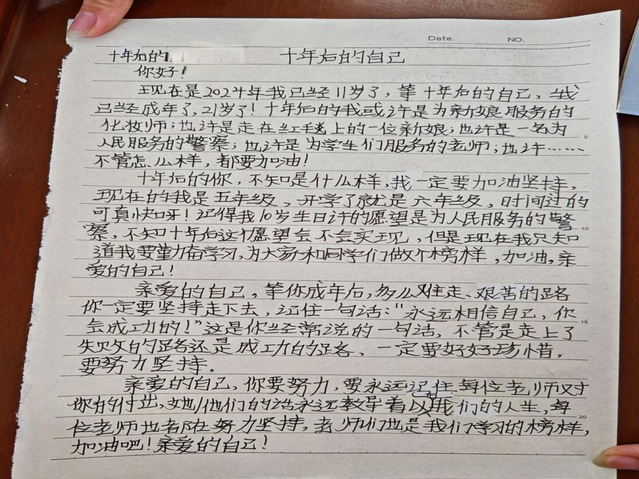 Date. NO.
十年后的自己
十年后的
你好!
现在是2024年我已经11岁了,等十年后的自己,我
已经成年了,21岁了!十年后的我或许是为新娘服务的
化妆师;也许是走在红毯上的一位新娘;也许是一名为
人民服务的警察;也许是为学生们服务的老师;也许……
不管怎么样,都要加油!
十年后的你,不知是什么样,我一定要加油坚持,
现在的我是五年级,开学了就是六年级,时间过的
可真快呀!记得我10岁生日许的愿望是为人民服务的警
察,不知十年后这个愿望会不会实现,但是现在我只知
道我要勤奋学习,为大家和同学们做个榜样,加油,亲
爱的自己!
亲爱的自己,等你成年后,多么难走、艰苦的路
你一定要坚持走下去,记住一句话:“永远相信自己,你
会成功的!”这是你经常说的一句话,不管是走上了
失败的的路还是成功的的路、一定要好好珍惜。
要努力坚持。
亲爱的自己,你要努力,要永远记住每位老师对
你的付出,她/他们的话永远教导着以我们的人生,每
位老师也都在努力坚持,老师们也是我们学习的榜样,
加油吧!亲爱的自己!
10
15
20